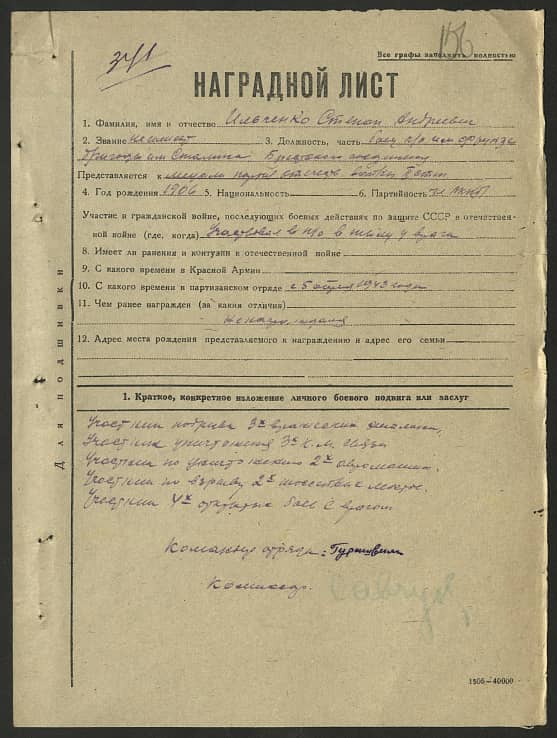 156
341
Все графы заполнять полностью
НАГРАДНОЙ ЛИСТ
1. Фамилия, имя и отчество Ильченко Степан Андреевич
2. Звание 3. Должность, часть боец п/о им Фрунзе
бригады им Сталина Брестского соединения
Представляется к медаль парт. отечеств. войны
4. Год рождения 1906 5. Национальность 6. Партийность
Участие в гражданской войне, последующих боевых действиях по защите СССР в отечествен-
ной войне (где, когда) Участвовал в п/о в тылу у врага
8. Имеет ли ранения и контузии в отечественной войне
9. С какого времени в Красной Армии
10. С какого времени в партизанском отряде с 5 1943 года
11. Чем ранее награжден (за какия отличия)
12. Адрес места рождения представляемого к награждению и адрес его семьи
Для подшивки
1. Краткое, конкретное изложение личного боевого подвига или заслуг
Участник подрыва 3х вражеских эшелонов,
Участник уничтожения 3х к.м. связи
Участник по уничтожению 2х автомашин.
Участник по взрыву 2х шоссейных мостов.
Участник 4х открытых боев с врагом
Командир отряда:
Комиссар.
1906—40000